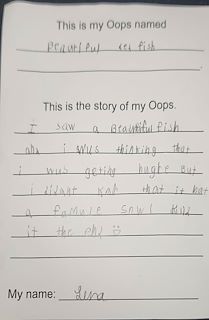 This is my Oops named
Beautiful fish
This is the story of my Oops.
I saw a Beautiful Fish
and i wus thinking that
i wus geting hughe But
i didant that it
a
it the end
My name: Lena